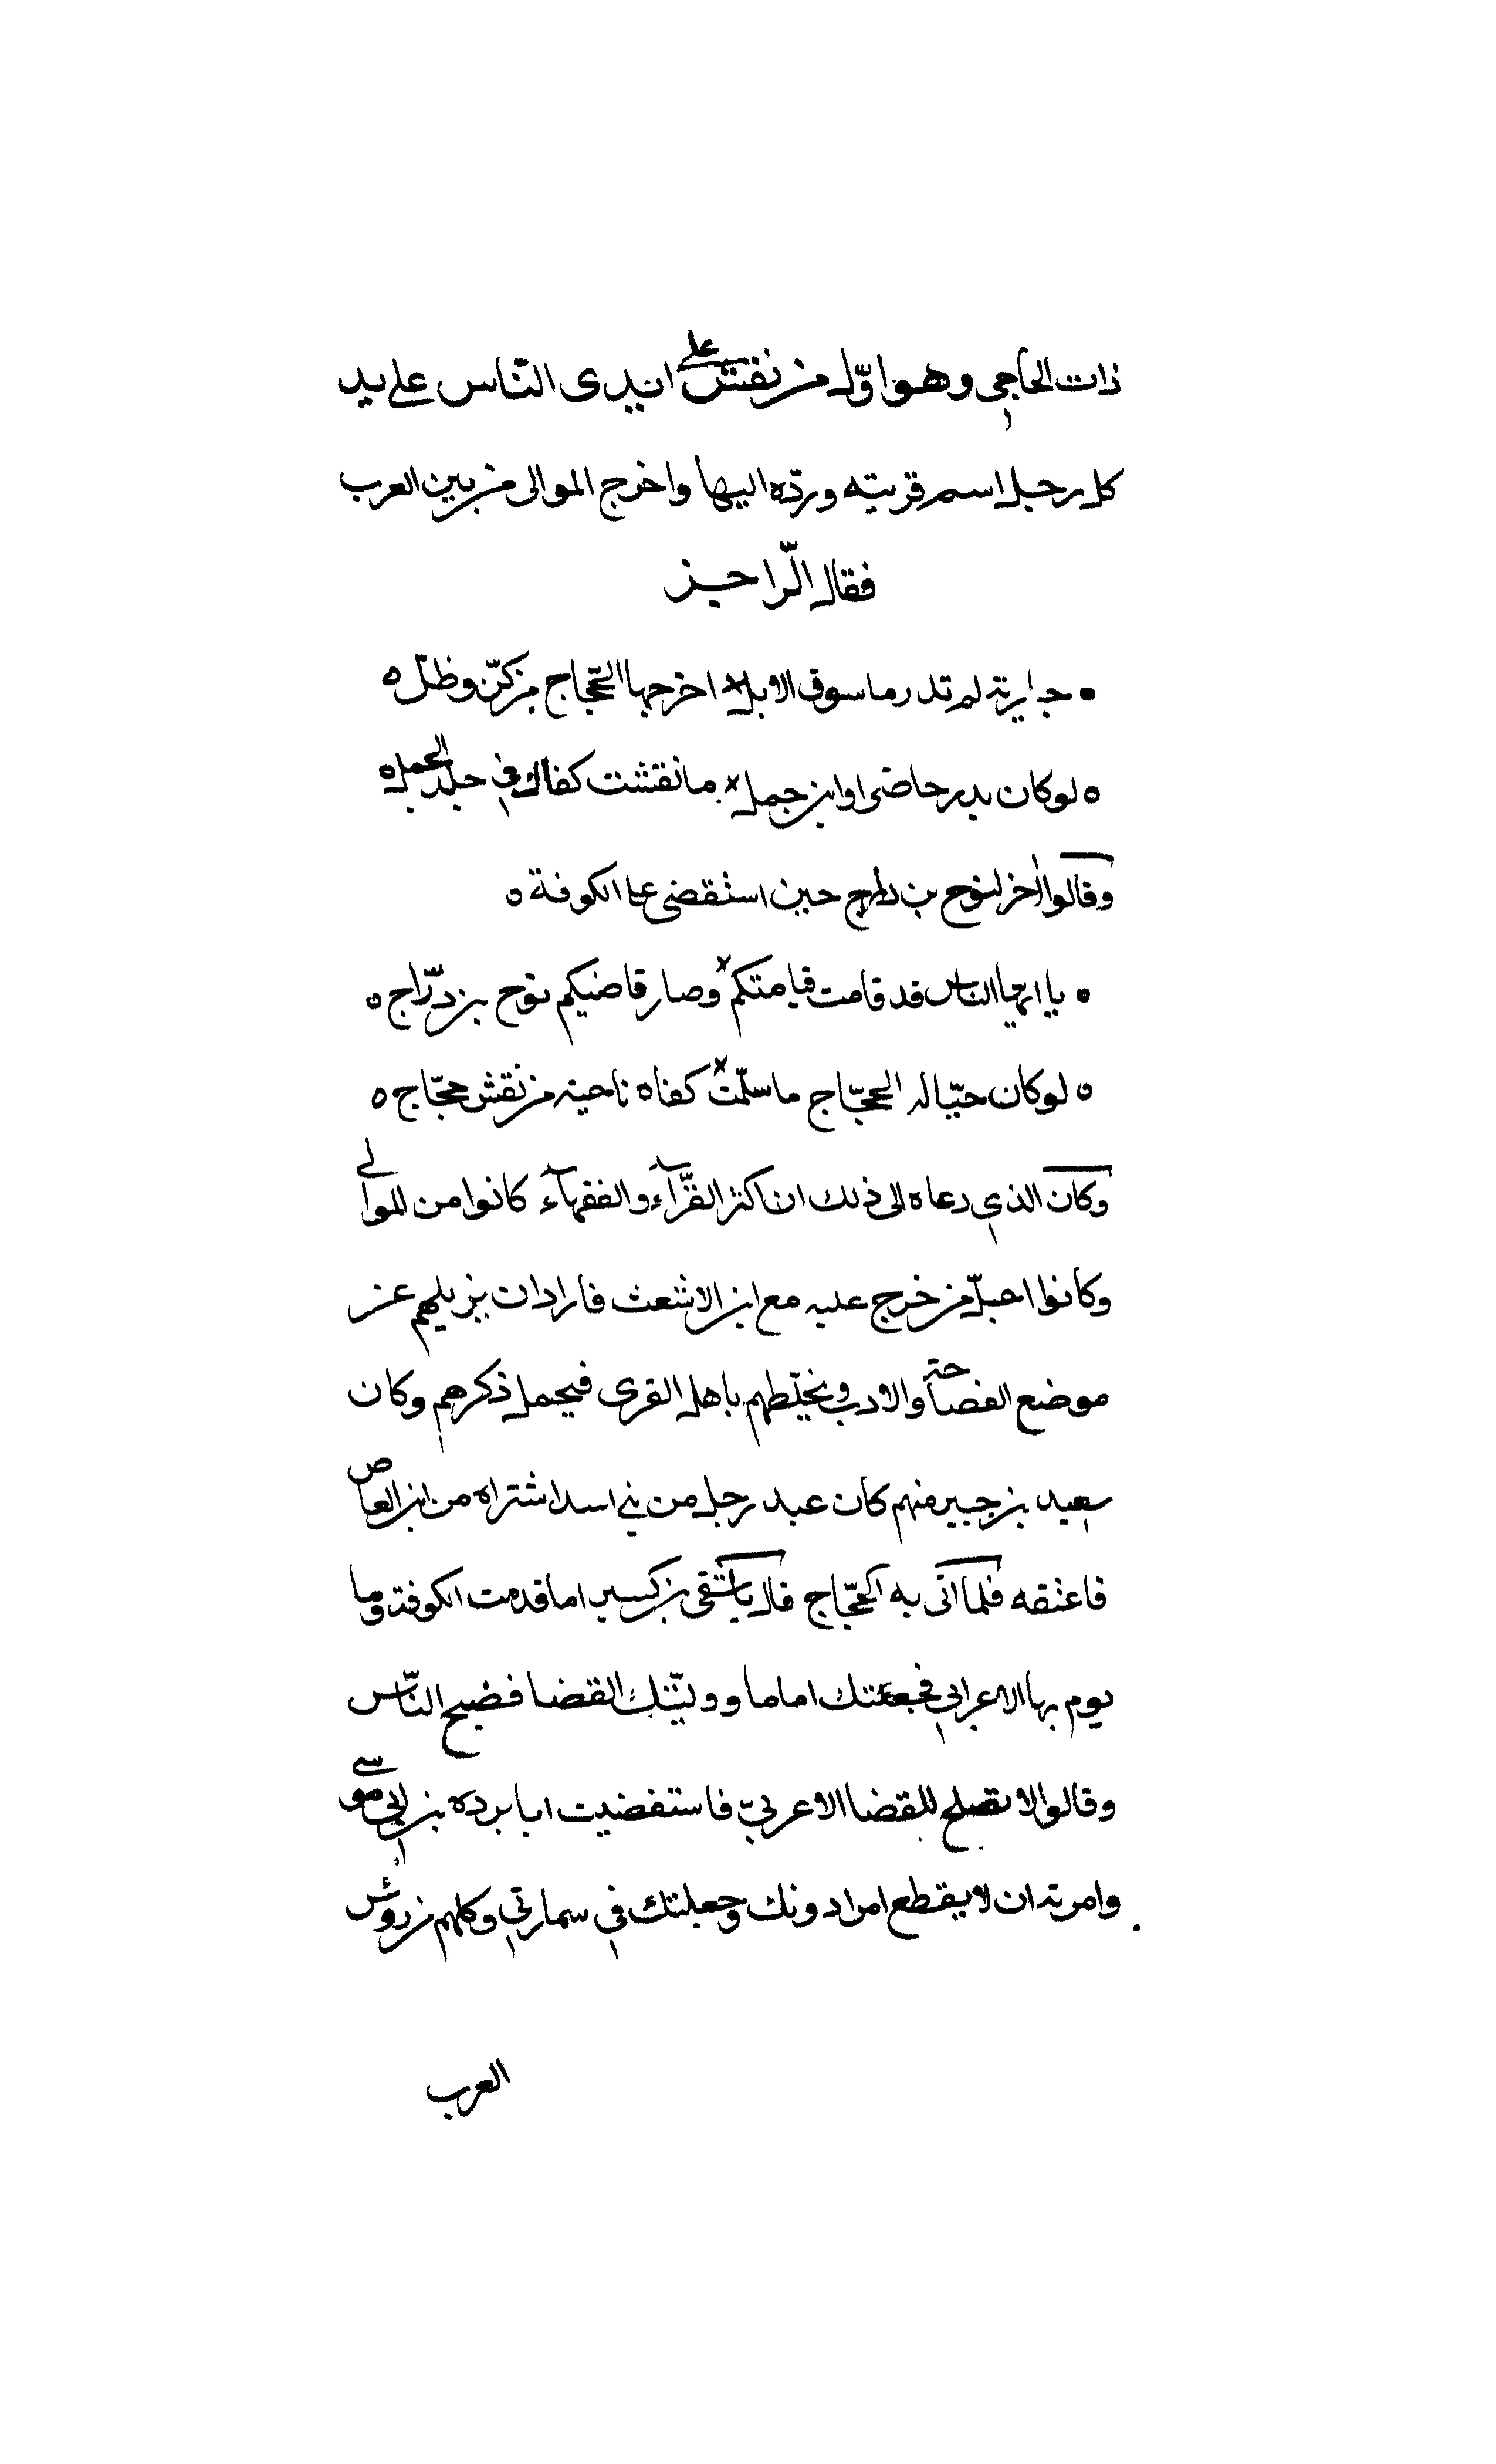 ذات الحاجي وهو اوّل من نقش على ايدى النّاس على يد
كل رجل اسم قريته وردّه اليها واخرج الموالى من بين العرب
فقال الرّاجز
• جارية لم تدر ما سوق الابل × اخرجها الحجّاج من كنّ وظلّ ه
ه لو كان بدر حاضرا وابن جمل × ما نقشت كفاك في جلد الجمل ه
وقال اخر لنوح بن دراج حين استقضى على الكوفة ه
• يا ايها الناس قد قامت قيامتكم × وصار قاضيكم نوح بن درّاج ه
ه لو كان حيّا له الحجّاج ما سلمت × كفاه ناحية من نقش حجّاج ه
وكان الذي دعاه الى ذلك ان اكثر القرّآء والفقهآء كانوا من الموالي
وكانوا اجلّ من خرج عليه مع ابن الاشعث فاراد ان يزيلهم عن
موضع الفصاحة والادب ويخلّطهم باهل القرى فيحمل ذكرهم وكان
سعيد بن جبير منهم كان عبد رجل من بني اسد اشتراه من ابن العاص
فاعتقه فلما اتى به الحجّاج قال يا شقى بن كسير اما قدمت الكوفة وما
يوم بها الاعرابي فجعلتك اماما ووليّتك القضا فضبح النّاس
وقالوا لا تصلح للقضا الا عربيّ فاستقضيت ابا برده بن ابي موسى
وامرته ان لا يقطع امرا دونك وجعلتك في سمارتي وكلهم من رؤس
العرب